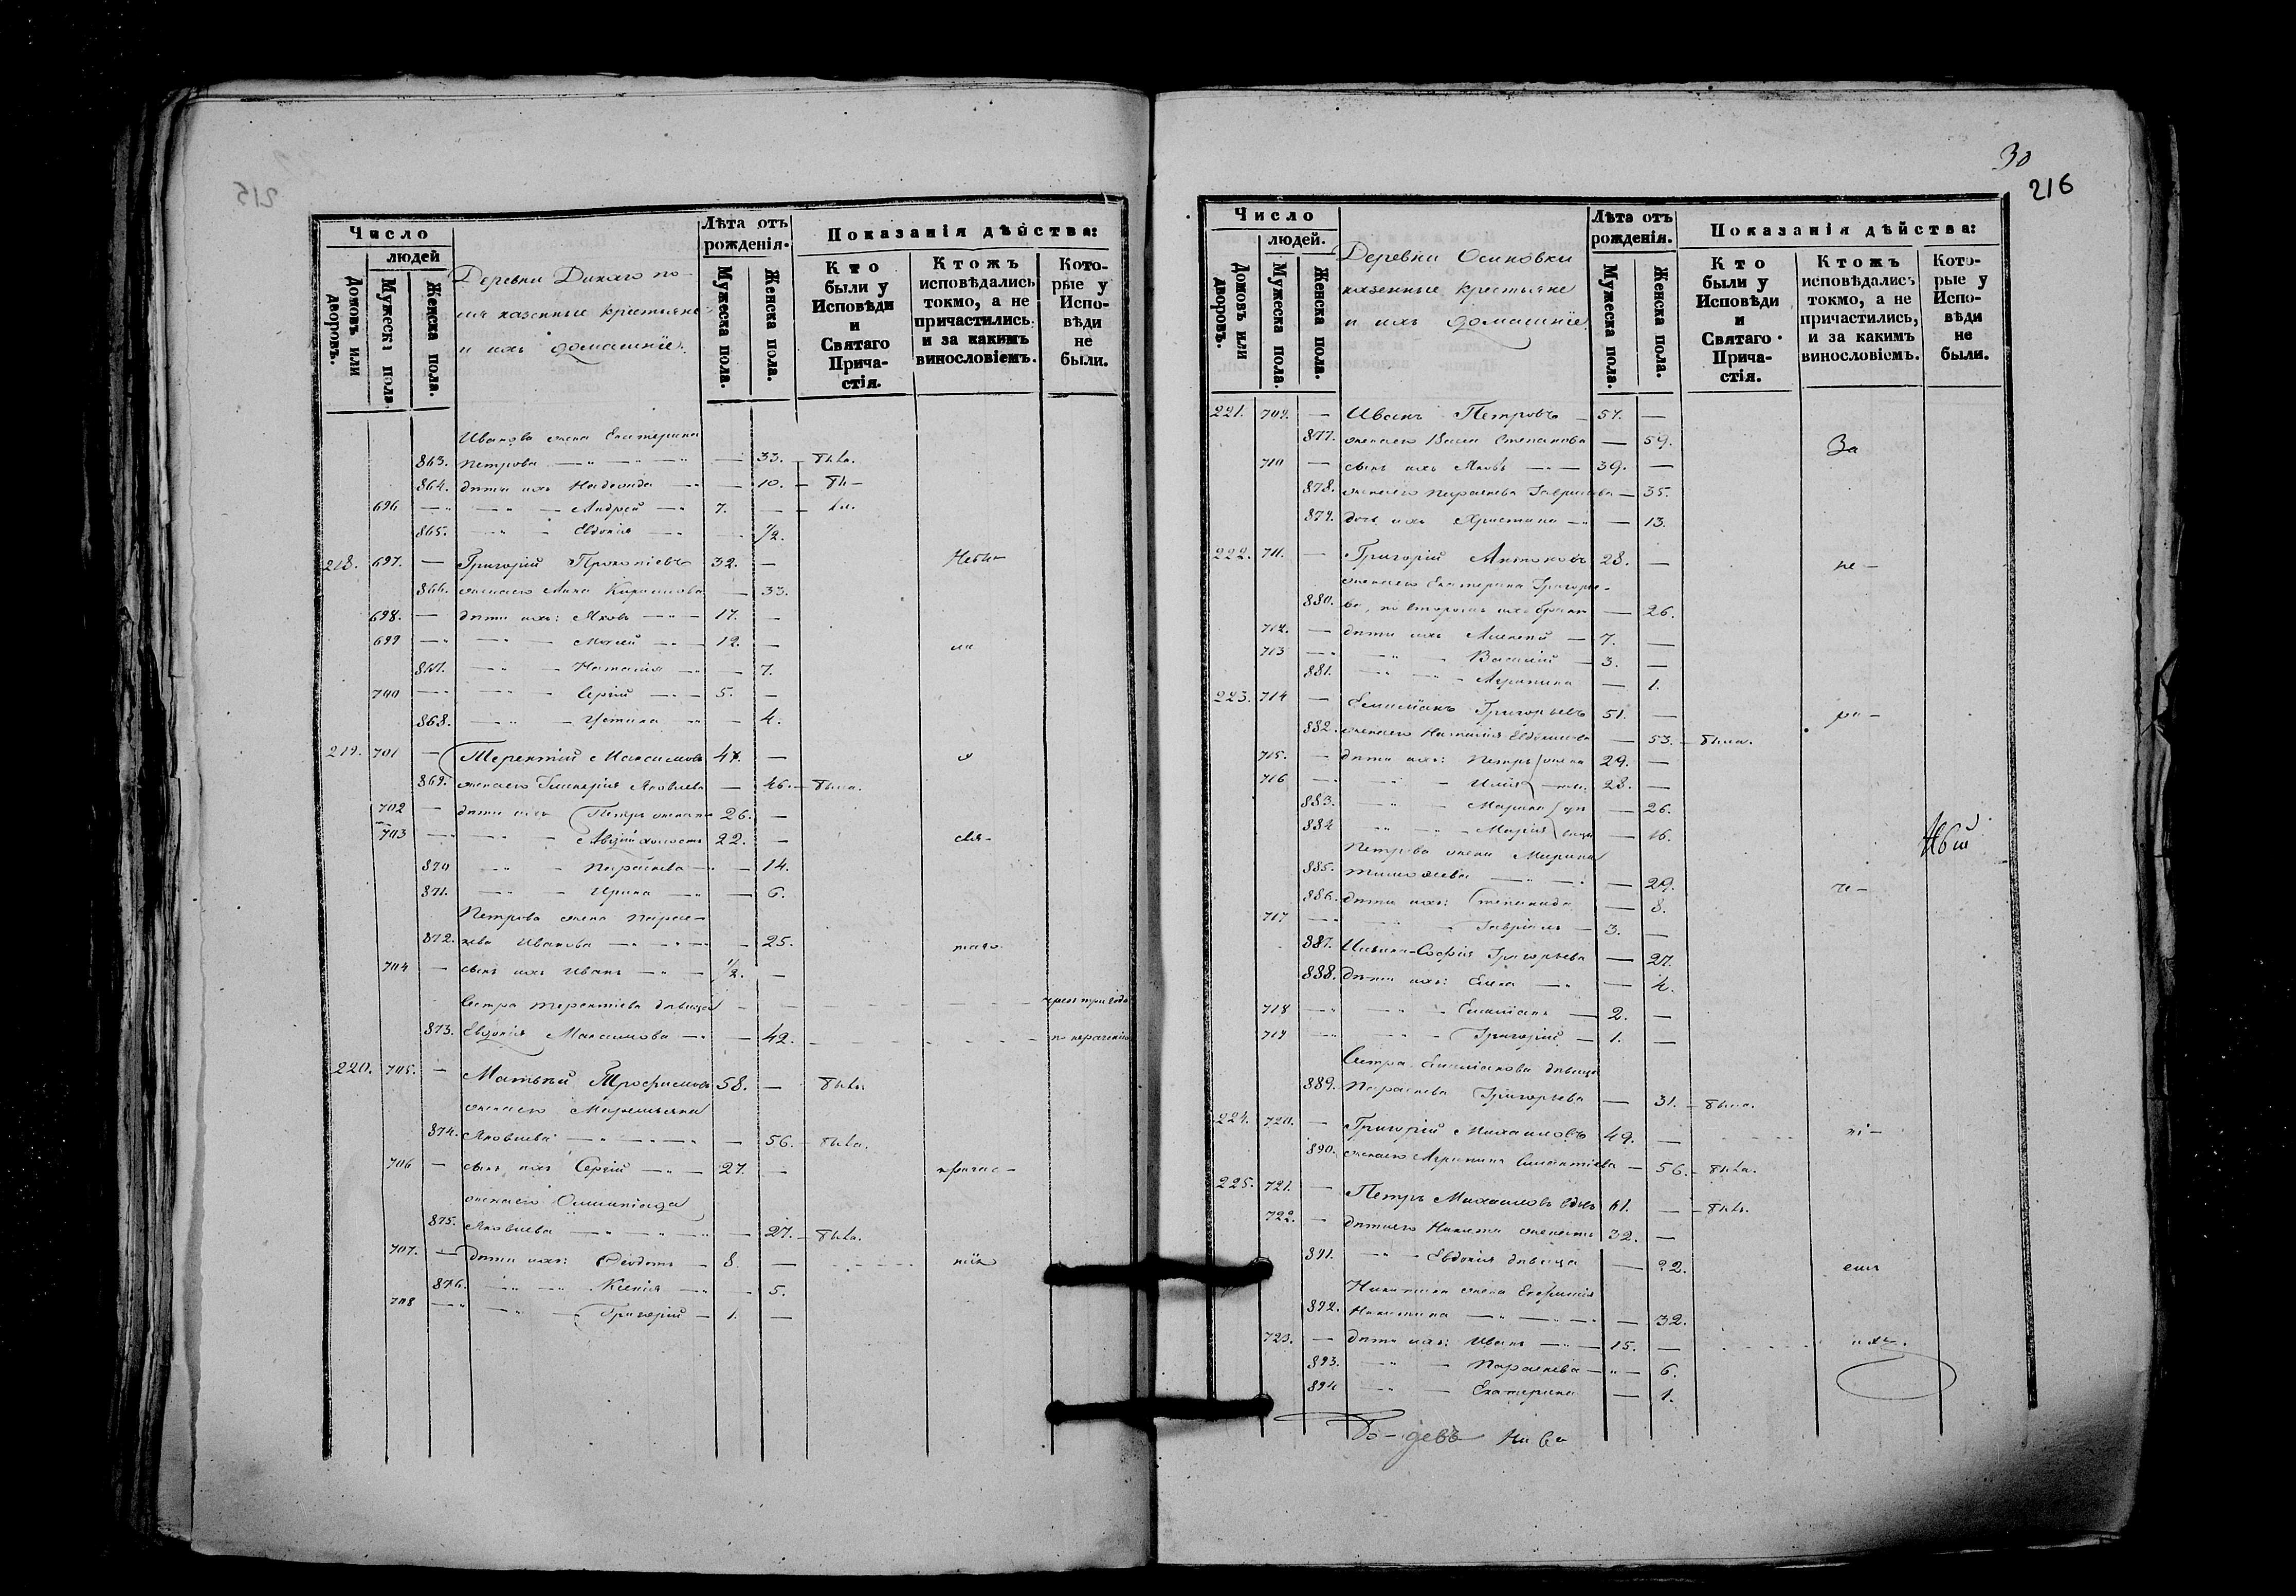 Число
людей
Домовъ или дворовъ.
Мужеска пола.
Женска пола.
Деревни Дикаго по-
ля казенные крестьяне
и ихъ домашніе.
Лѣта отъ рожденія.
Мужеска пола.
Женска пола.
Показанія дѣйства:
Кто были у Исповѣди и Святаго Прича-стія.
Ктожъ исповѣдались токмо, а не причастились: и за какимъ винословіемъ.
Кото-рые у Испо-вѣди не были.
Иванова жена Екатерина
863. Петрова — 33. — была.
864. дѣти ихъ Надежда — 10. — бы-
696 — Андрей — 7. — ли.
865. — Евдокія — 1/2.
218. 697. — Григорій Прокопіевъ 32. — Небы-
866. жена его Анна Кирилова — 33.
698. — дѣти ихъ: Яковъ — 17. —
699 — Моисей — 12. — ли
867. — Наталія — 7.
700 — Сергій — 5. —
868. — Устина — 4.
219. 701 — Терентій Максимовъ 47. — у
869. жена его Гликерія Яковлева — 46. — была.
702 — дѣти ихъ Петръ женатъ 26. —
703 — холостъ 22. — свя-
870 — Параскева — 14.
871. — Ирина — 6.
Петрова жена Парас-
872. кева Иванова — 25. таго
704 — сынъ ихъ Иванъ — 1/2. —
Сестра Терентіева дѣвица — чрезъ три года
873. Евдокія Максимова — 42. — по нераченію
220. 705. — Матвей Трофимовъ 58. — былъ.
жена его Маремьяна
874. Яковлева — 56. — была.
706 — сынъ ихъ Сергій — 27. — причас-
жена его Олимпіада
875. Яковлева — 27. — была.
707. — дѣти ихъ: Ѳеодотъ — 8. — тія
876. — Ксенія — 5.
708 — Григорій — 1. —
30
216
Число
людей.
Домовъ или дворовъ.
Мужеска пола.
Женска пола.
Деревни Осиновки
казенные крестьяне
и ихъ домашніе.
Лѣта отъ рожденія.
Мужеска пола.
Женска пола.
Показанія дѣйства:
Кто были у Исповѣди и Святаго Прича-стія.
Ктожъ исповѣдались токмо, а не причастились, и за какимъ винословіемъ.
Кото-рые у Испо-вѣди не были.
221. 709. — Иванъ Петровъ — 57. —
877. жена его Степанова — 59. За
710 — сынъ ихъ Яковъ — 39. —
878. жена его Параскева Гаврилова — 35.
879. дочь ихъ Христина — 13.
222. 711. — Григорій Антоновъ 28. — не-
жена его Екатерина Григорье-
880. ва, по второмъ ихъ бракѣ — 26.
712. — дѣти ихъ Алексей — 7. —
713 — Василій — 3. —
881. — Агрипина — 1.
223. 714 — Емиліанъ Григорьевъ 51. — ра-
882. жена его Наталія Евдокимова — 53. — была.
715. — дѣти ихъ: Петръ 29. —
716 — Илія 28. —
883. — Марина — 26.
884 — Марія — 16.
Петрова жена Марина
885. Тимофеева — 29. че-
886. дѣти ихъ: Степанида — 8.
717 — Гавріилъ — 3. —
887. Ильина-Софія Григорьева — 27.
888. дѣти ихъ: Елена — 4.
718 — Емиліанъ — 2. —
719 — Григорій — 1. —
Сестра Емиліанова дѣвица
889. Параскева Григорьева — 31. — была.
224. 720. — Григорій Михаиловъ 49. — ні-
890. жена его Агрипина — 56. — была.
225. 721. — Петръ Михаиловъ вдовъ 61. — былъ.
722. — дѣти его Никита женатъ 32. —
891. — Евдокія дѣвица — 22. емъ
Никитина жена Евфимія
892. Никитина — 32.
723. — дѣти ихъ: Иванъ — 15. — ихъ.
893. — Параскева — 6.
894 — Екатерина — 1.